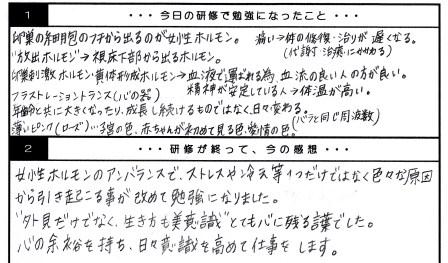 1 ・・・今日の研修で勉強になったこと・・・
卵巣の細胞のフチから出るのが女性ホルモン。 痛い→体の修復・治りが遅くなる。
"放出ホルモン"→視床下部から出るホルモン。 (代謝・治療にかかわる)
卵胞刺激ホルモン・黄体形成ホルモン→血液で運ばれる為、血流の良い人の方が良い。
フラストレーショントランス(心の器) 精神が安定している人→体温が高い。
年齢と共に大きくなったり、成長し続けるものではなく、日々変わる。
薄いピンク(ローズ)…子宮の色、赤ちゃんが初めて見る色、愛情の色、(バラと同じ周波数)
2 ・・・研修が終って、今の感想・・・
女性ホルモンのアンバランスで、ストレスや冷え等1つだけではなく色々な原因
から引き起こる事が改めて勉強になりました。
"外見だけでなく、生き方も美意識"とても心に残る言葉でした。
心の余裕を持ち、日々意識を高めて仕事をします。